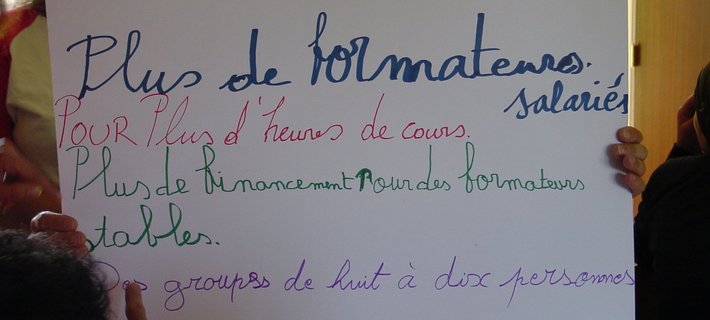 Plus de formateurs.
salariés
POUR Plus d'heures de cours.
Plus de financement Pour des formateurs
stables.
Des groupes de huit à dix personnes